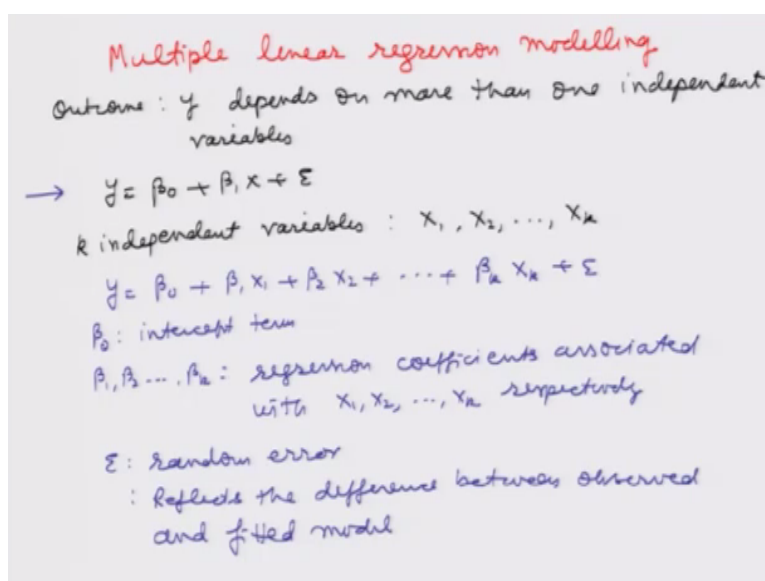 Multiple linear regression modelling
Outcome : y depends on more than one independent
variables
→ y = β₀ + β₁ x + ε
k independent variables : X₁, X₂, ..., Xₖ
y = β₀ + β₁ X₁ + β₂ X₂ + ... + βₖ Xₖ + ε
β₀ : intercept term
β₁, β₂ ..., βₖ : regression coefficients associated
with X₁, X₂, ..., Xₖ respectively
ε : random error
: Reflects the difference between observed
and fitted model